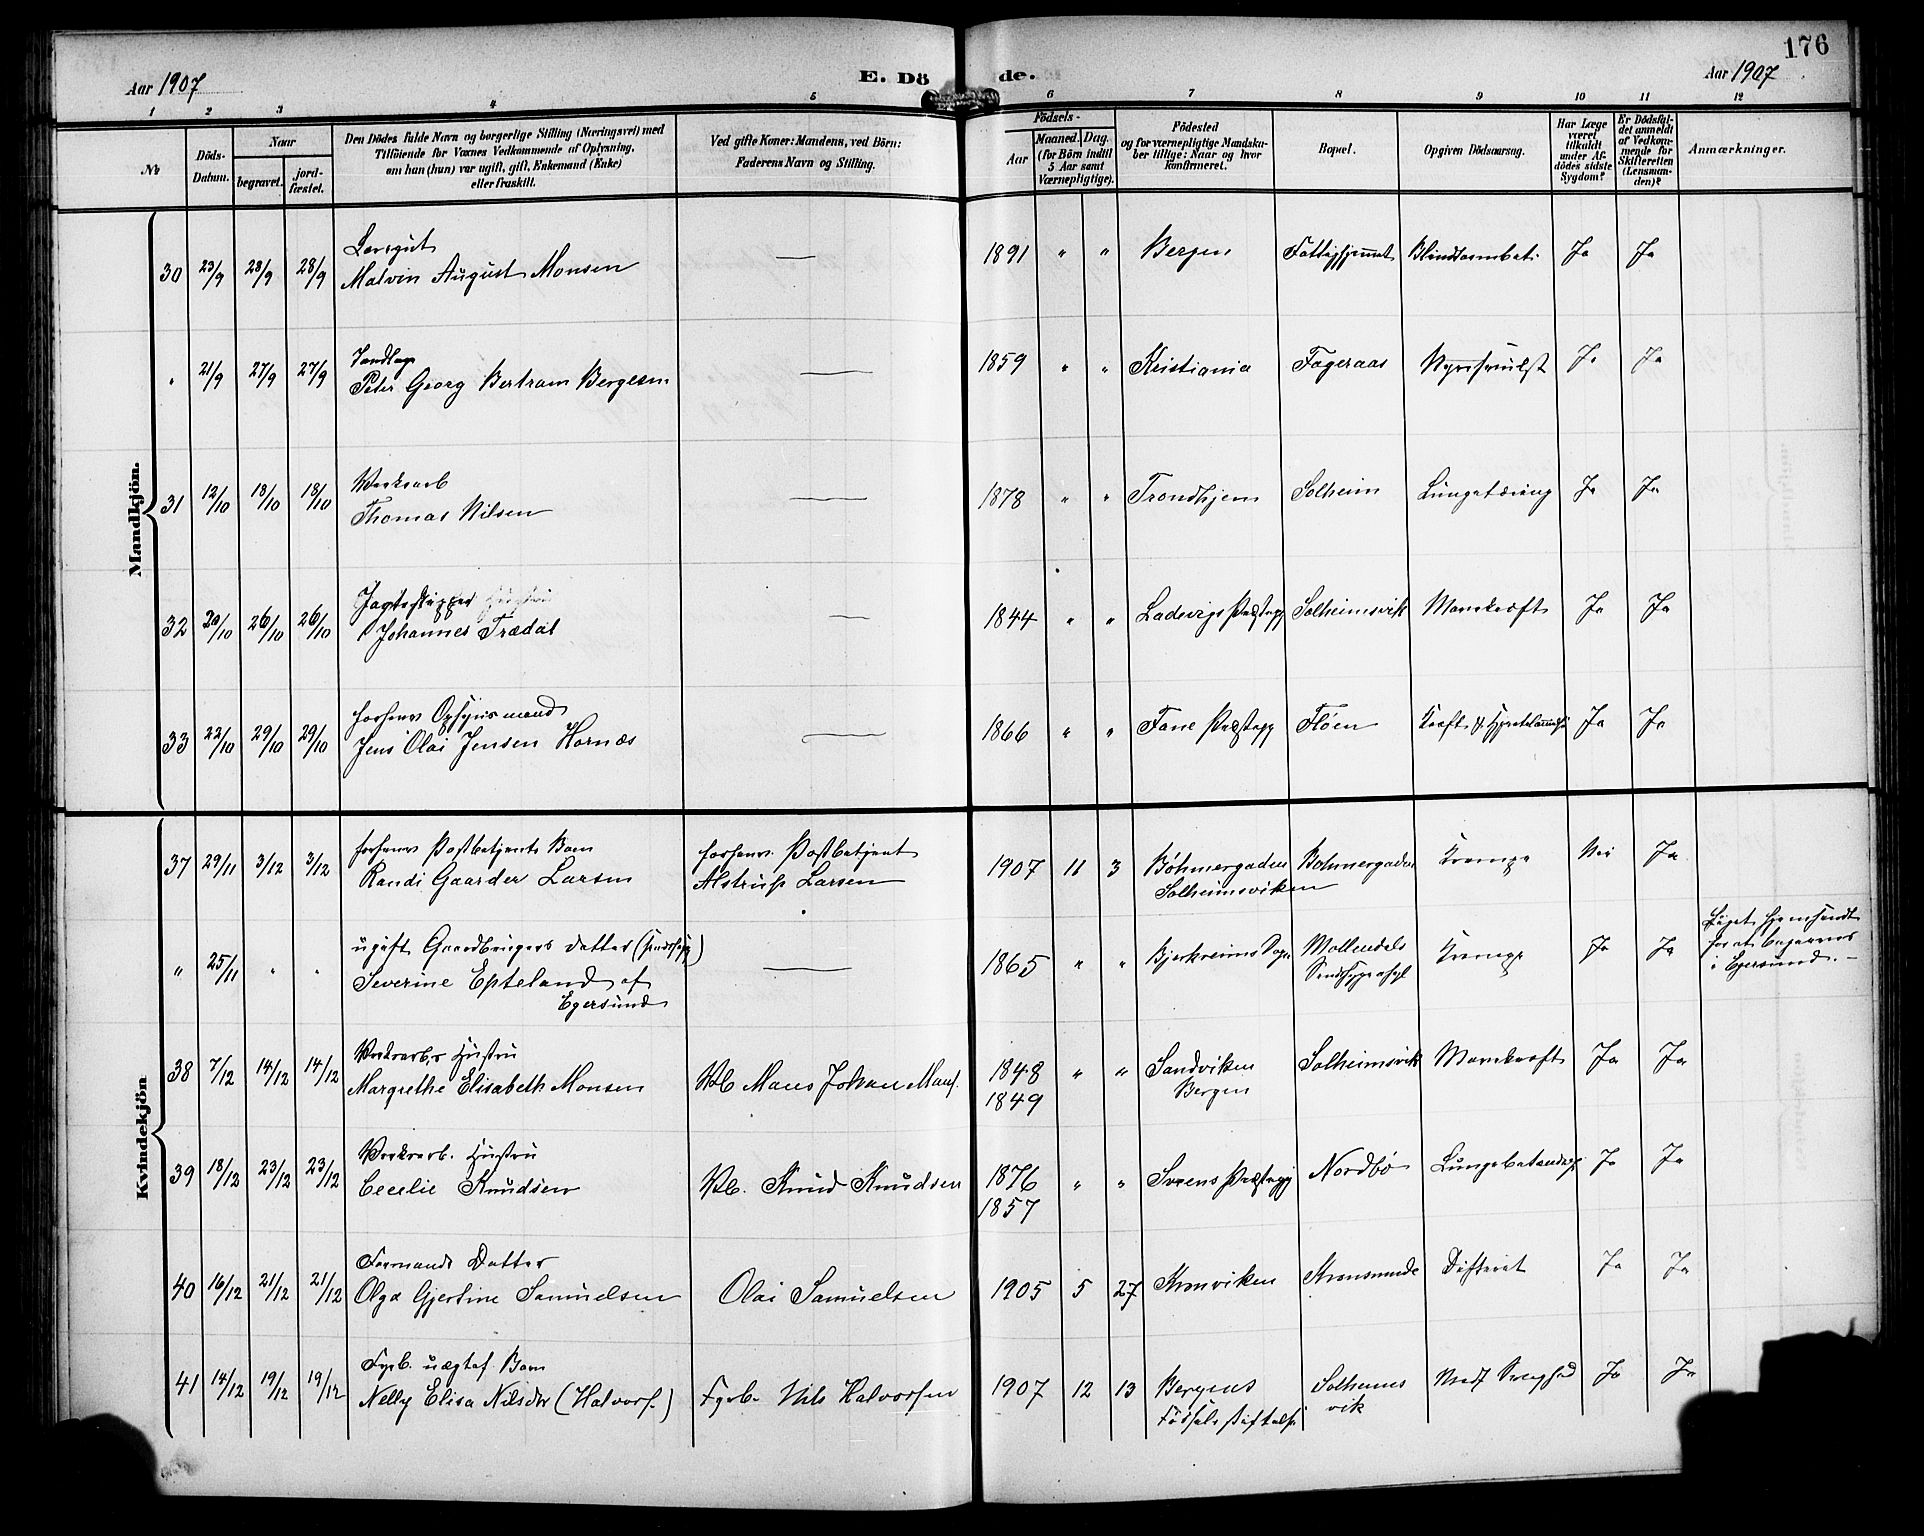 176
Aar 1907
E. Dö de.
Aar 1907
1 2 3 4 5 6 7 8 9 10 11 12
No
Döds-
Datum.
Naar
begravet.
jord-
fæstet.
Den Dödes fulde Navn og borgerlige Stilling (Næringsvei) med
Tilföiende for Voxnes Vedkommende af Oplysning,
om han (hun) var ugift, gift, Enkemand (Enke)
eller fraskilt.
Ved gifte Koner: Mandens, ved Börn:
Faderens Navn og Stilling.
Födsels-
Aar
Maaned. Dag.
(for Börn indtil
5 Aar samt
Værnepligtige).
Födested
og for værnepligtige Mandska-
ber tillige: Naar og hvor
konfirmeret.
Bopæl.
Opgiven Dödsaarsag.
Har Læge
været
tilkaldt
under Af-
dödes sidste
Sygdom?
Er Dödsfal-
det anmeldt
af Vedkom-
mende for
Skifteretten
(Lensman-
den)?
Anmærkninger.
Mandkjön.
30 23/9 28/9 28/9
Malvin August Monsen
— 1891 " " Bergen Ja Ja
" 21/9 27/9 27/9
Peter Georg Bertram Bergesen
— 1859 " " Kristiania Fageraas Ja Ja
31 12/10 18/10 18/10
Thomas Nilsen
— 1878 " " Trondhjem Solheim Lungetæring Ja Ja
32 20/10 26/10 26/10 Jagteskipper
Johannes Trædal
— 1844 " " Ladevigs Præstegj Solheimsvik Marvkræft Ja Ja
33 22/10 29/10 29/10 forhenv Opsynsmand
Jens Olai Jensen Hornæs
— 1866 " " Fane Præstegj Fløen Ja Ja
Kvindekjön
37 29/11 3/12 3/12 forhenv Postbetjents Barn
Randi Gaarder Larsen
forhenv. Postbetjent
Alstrup Larsen
1907 11 3 Böhmergaden
Solheimsviken
Bohmergaden Krampe Nei Ja
" 25/11 " " ugift Gaardbrugers datter
Severine Epteland af
Egersund
— 1865 " " Bjerkreims Sogn Møllendals
Krampe Ja Ja
Liget hjemsendt
for at begraves
i Egersund. —
38 7/12 14/12 14/12 Verksarb.s Hustru
Margrethe Elisabeth Monsen
Vb Mons Johan Mons.
1848
1849
" " Sandviken
Bergen
Solheimsvik Mavekræft Ja Ja
39 18/12 23/12 23/12 Verksarb. Hustru
Cecelie Knudsen
Vb. Knud Knudsen
1876
1857
" " Sveens Præstegj Nordbø Lungebetændelse Ja Ja
40 16/12 21/12 21/12 Formands Datter
Olga Gjertine Samuelsen
Olai Samuelsen
1905 5 27 Kronviken Difterit Ja Ja
41 14/12 19/12 19/12 Fyrb. uægtef. Barn
Nelly Elisa Nilsdtr (Halvors.)
Fyrb. Nils Halvorsen
1907 12 13 Bergens
Födselsstiftelse
Solheims
vik
Medf Svaghed Ja Ja